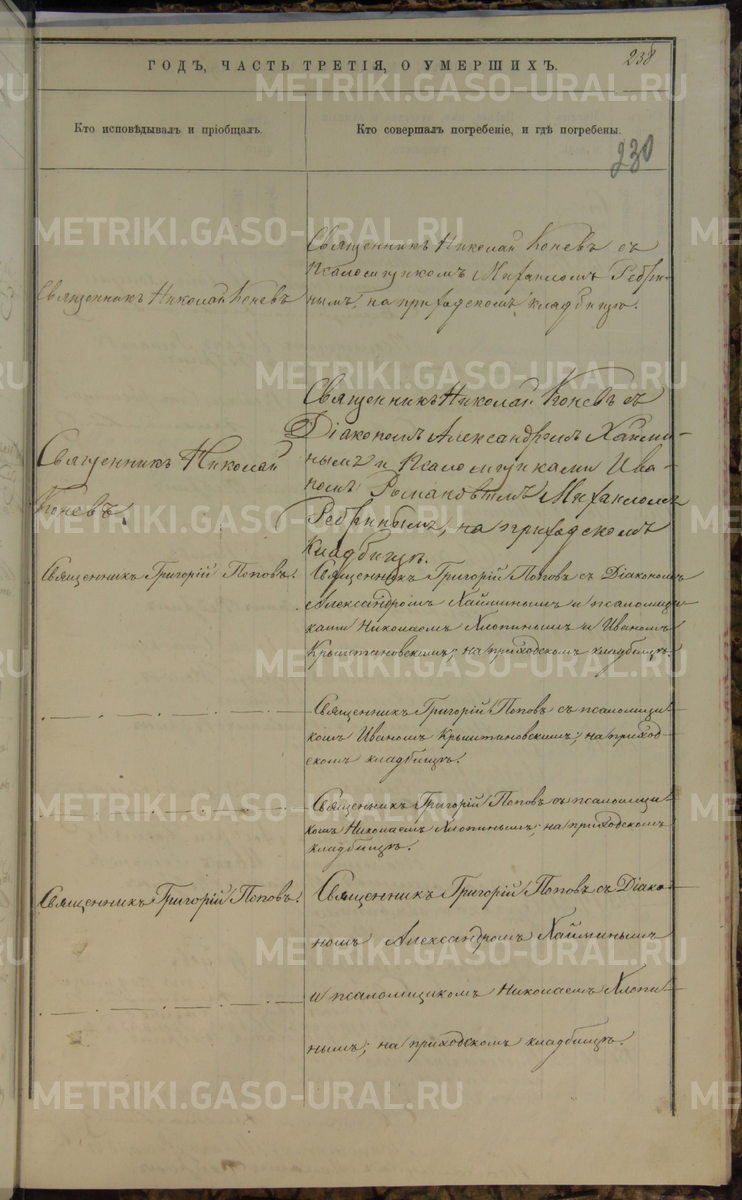 238
ГОДЪ, ЧАСТЬ ТРЕТІЯ, О УМЕРШИХЪ.
METRIKI.GASO-URAL.RU
Кто исповѣдывалъ и пріобщалъ.
Кто совершалъ погребеніе, и гдѣ погребены.
230
Священникъ Николай Коневъ
Священникъ Николай Коневъ съ
Псаломщикомъ Михаиломъ Ребри-
нымъ, на приходскомъ кладбищѣ.
Священникъ Николай
Коневъ.
Священникъ Николай Коневъ съ
Діакономъ Александромъ Хайми-
нымъ и Псаломщиками Ива-
номъ Михаиломъ
Ребринымъ, на приходскомъ
кладбищѣ.
Священникъ Григорій Поповъ.
Священникъ Григорій Поповъ съ Діакономъ
Александромъ Хайминымъ и псаломщи-
ками Николаемъ Хлопинымъ и Иваномъ
Крыштановскимъ; на приходскомъ кладбищѣ.
Священникъ Григорій Поповъ съ псаломщи-
комъ Иваномъ Крыштановскимъ; на приход-
скомъ кладбищѣ.
Священникъ Григорій Поповъ съ псаломщи-
комъ Николаемъ Хлопинымъ; на приходскомъ
кладбищѣ.
Священникъ Григорій Поповъ.
Священникъ Григорій Поповъ съ Діако-
номъ Александромъ Хайминымъ
и псаломщикомъ Николаемъ Хлопи-
нымъ; на приходскомъ кладбищѣ.